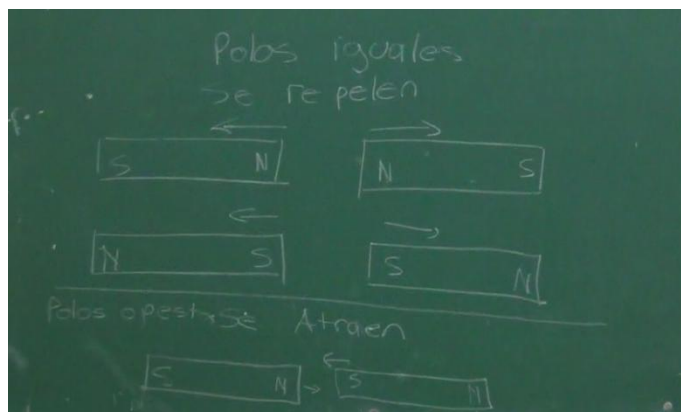 Polos iguales
se repelen
S N N S
N S S N
Polos opest. Se Atraen
S N S N